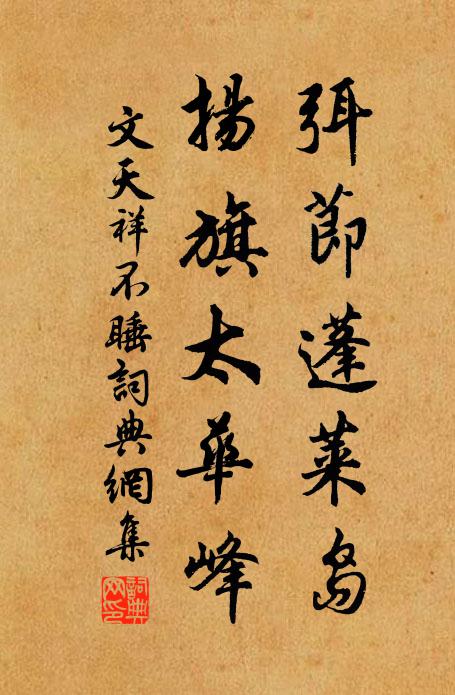 弭節蓬萊島
揚旗太華峰
文天祥不睡詞典網集
詞典
網印